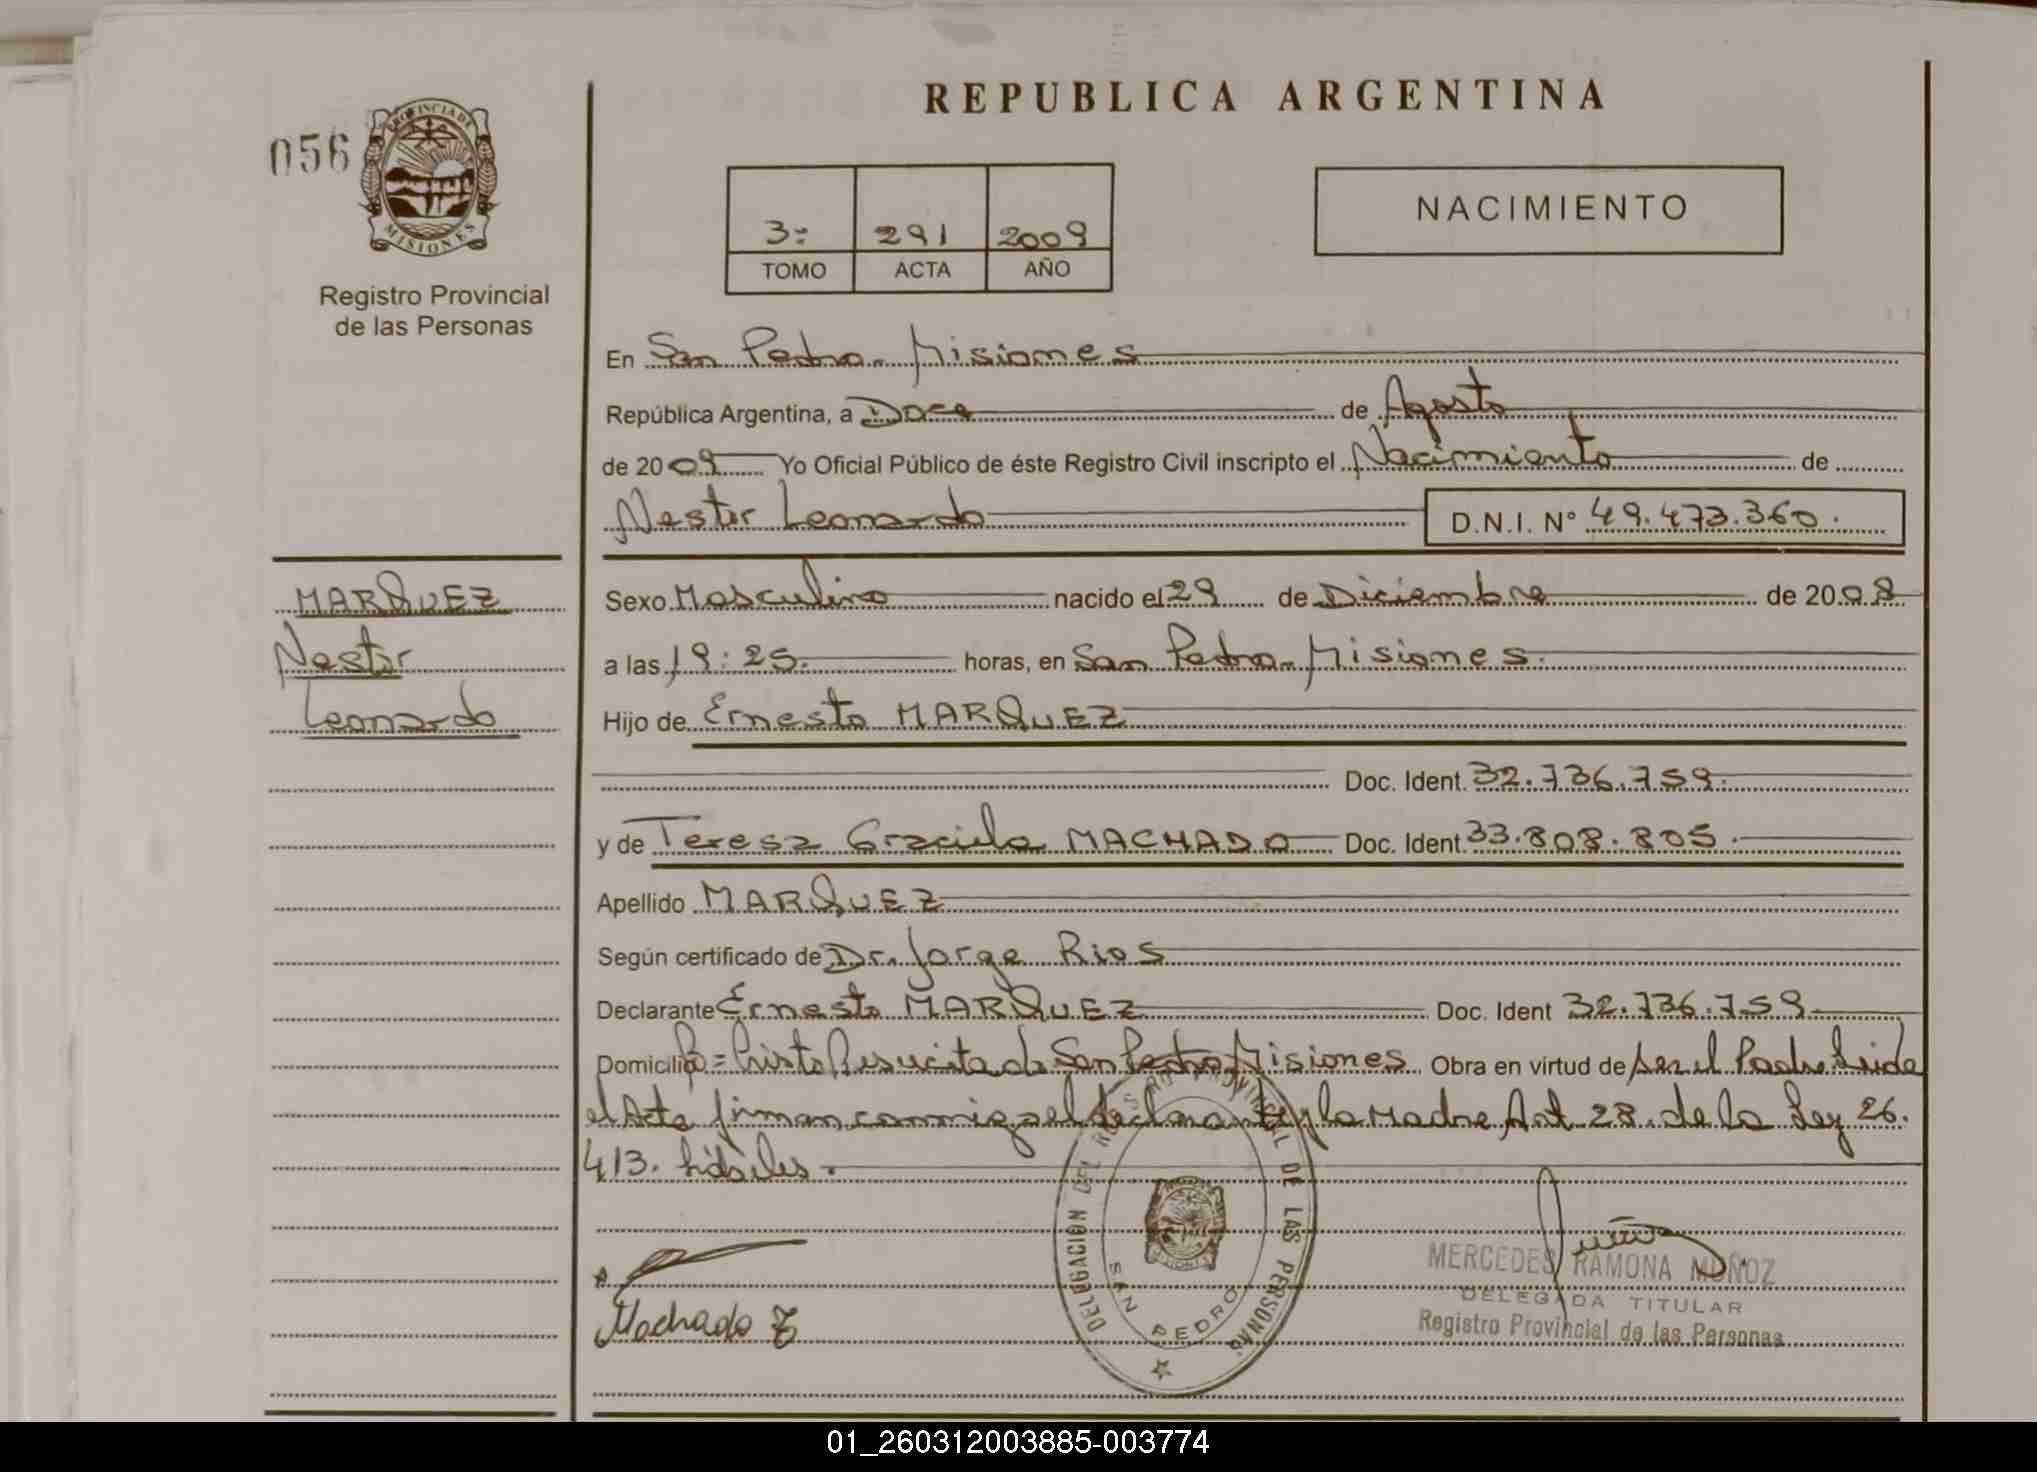 REPUBLICA ARGENTINA
056
PROVINCIA DE
MISIONES
Registro Provincial
de las Personas
3º 291 2009
TOMO ACTA AÑO
NACIMIENTO
En San Pedro - Misiones
República Argentina, a Doce de Agosto
de 2009 Yo Oficial Público de éste Registro Civil inscripto el Nacimiento de
Nestor Leonardo D.N.I. Nº 49.473.360.
MARQUEZ
Nestor
Leonardo
Sexo Masculino nacido el 29 de Diciembre de 2008
a las 19:25. horas, en San Pedro - Misiones.
Hijo de Ernesto MARQUEZ
Doc. Ident. 32.736.759.
y de Teresa Graciela MACHADO Doc. Ident 33.808.805.
Apellido MARQUEZ
Según certificado de Dr. Jorge Rios
Declarante Ernesto MARQUEZ Doc. Ident 32.736.759
Domicilio Bº = Cristo Resucitado San Pedro Misiones Obra en virtud de ser el Padre Leida
el Acta firman conmigo el declarante y la Madre Art 28. de la Ley 26.
413. hábiles.
DELEGACION DEL REGISTRO PROVINCIAL DE LAS PERSONAS
SAN PEDRO
Machado T
MERCEDES RAMONA MUÑOZ
DELEGADA TITULAR
Registro Provincial de las Personas
01_260312003885-003774